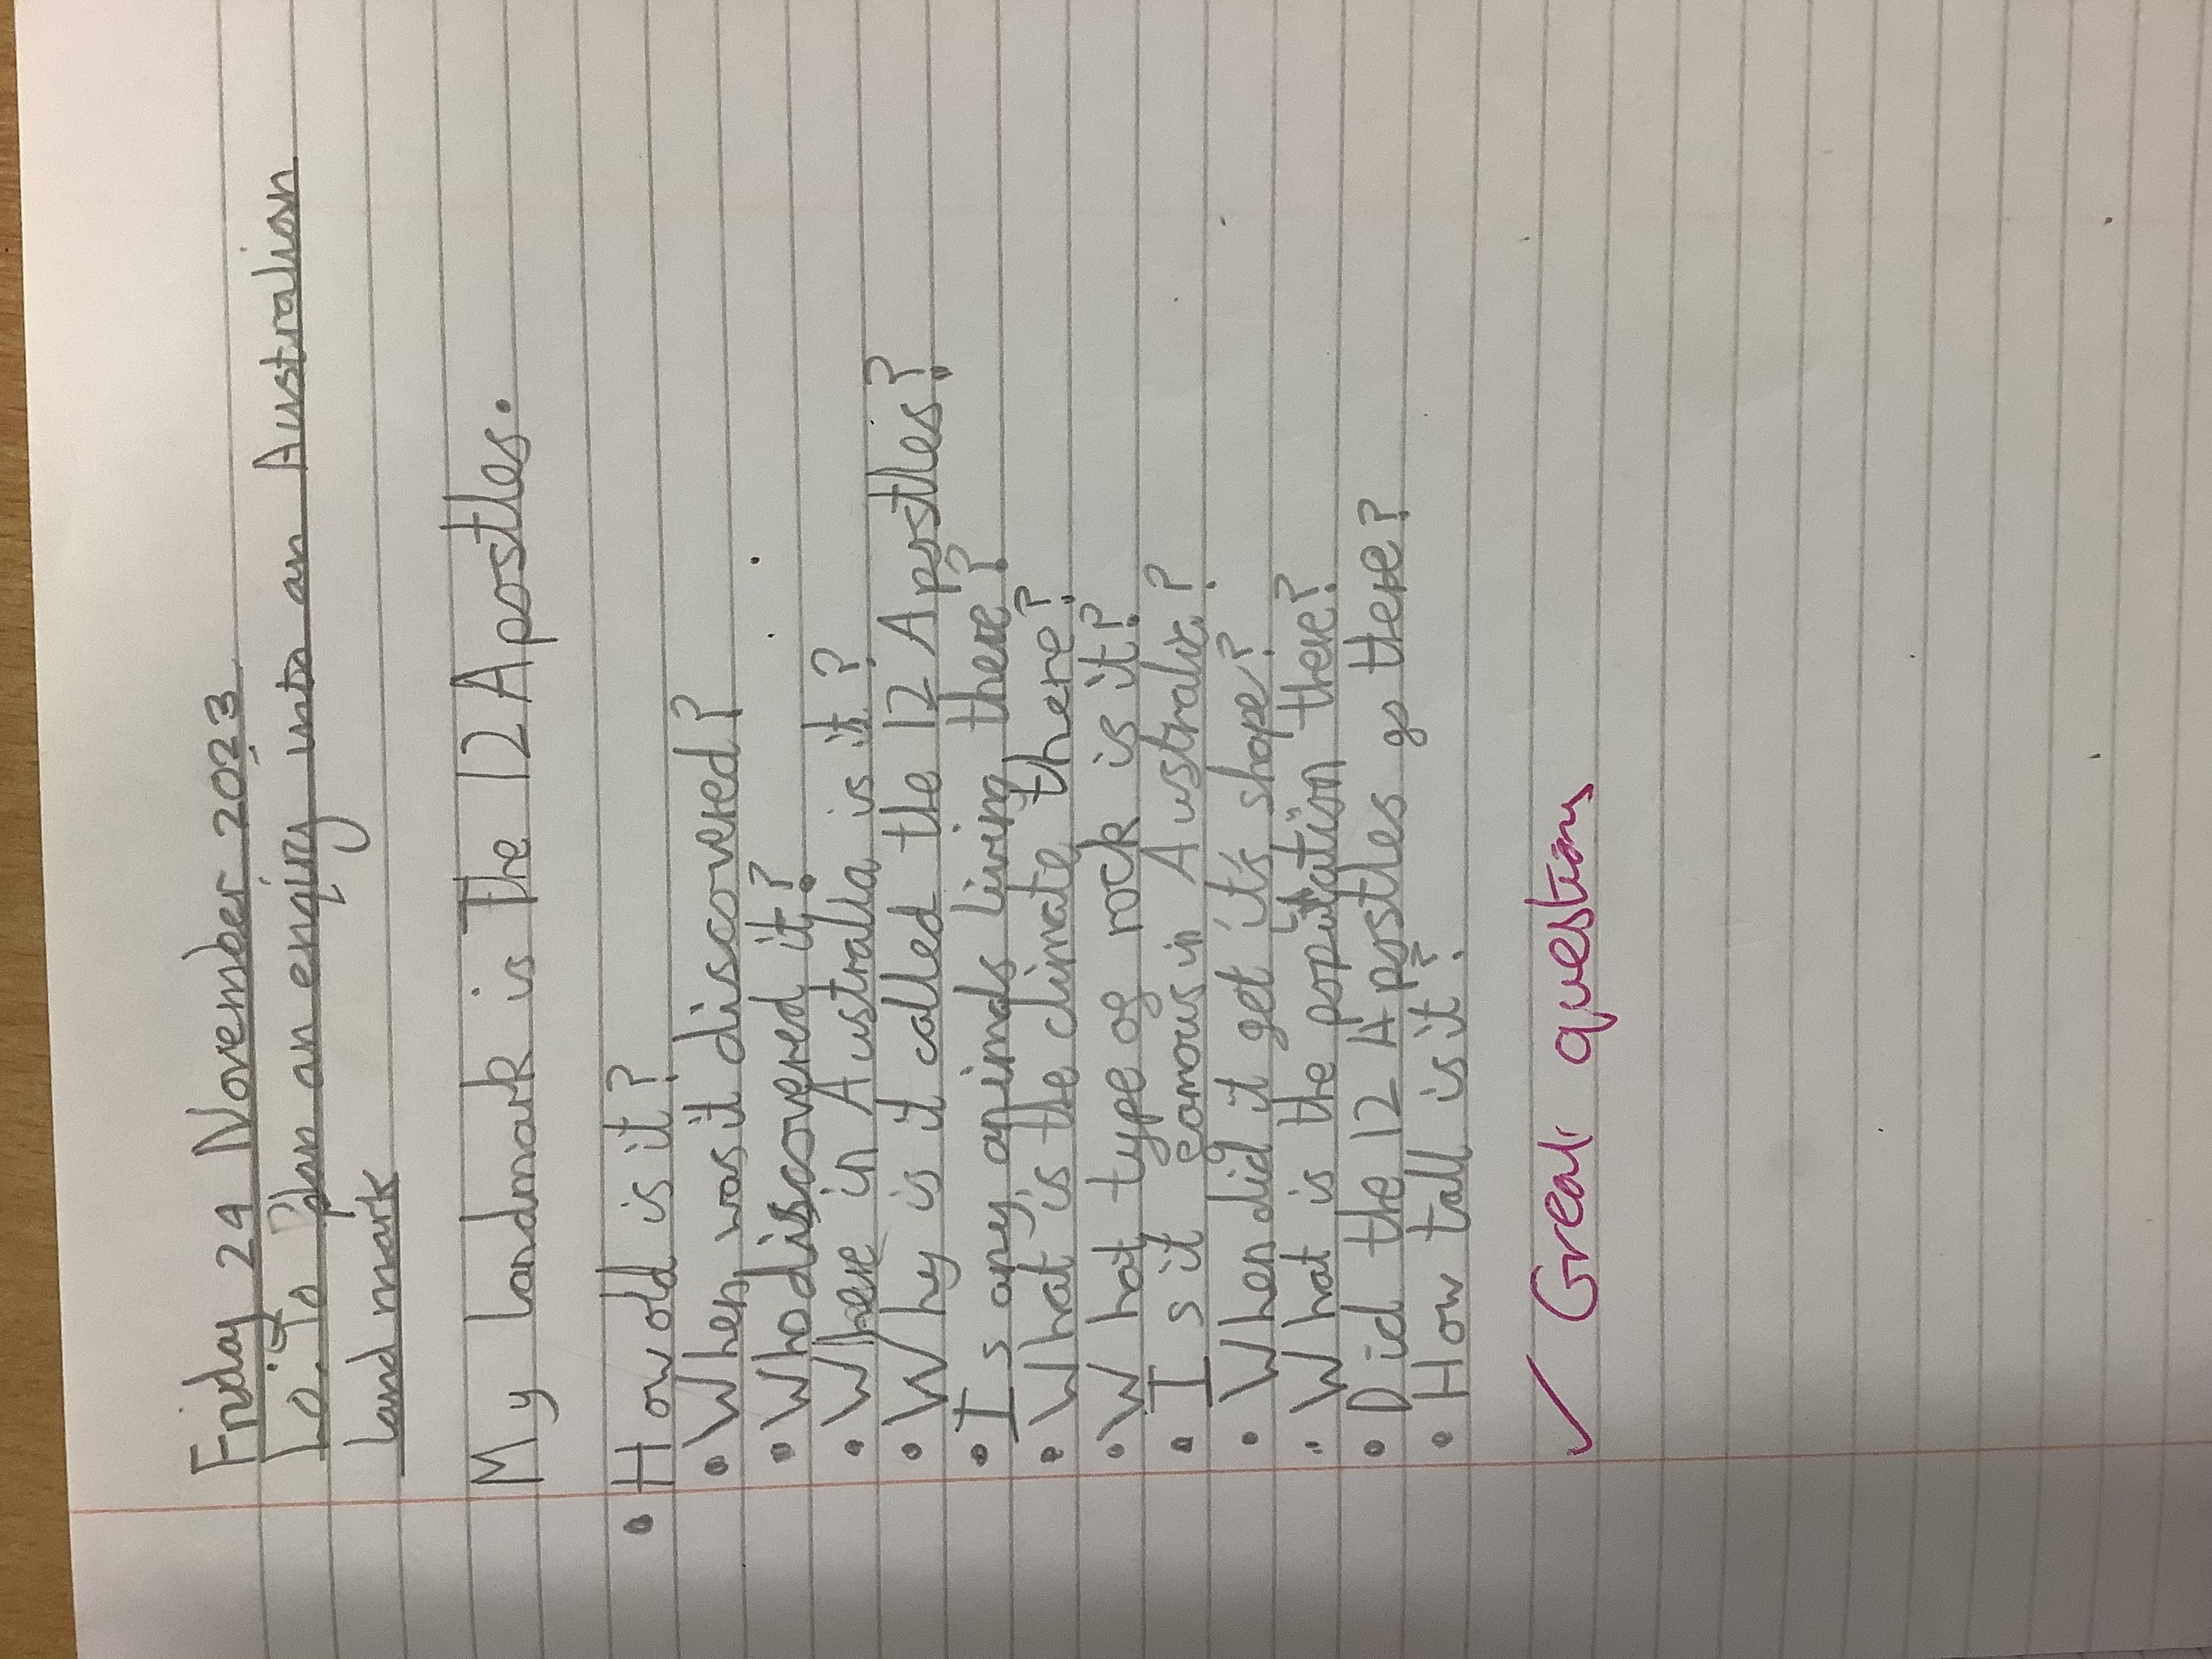 Friday 24 November 2023
L.O. To Plan an enquiry into an Australian
land mark
My landmark is The 12 Apostles.
• How old is it?
• When was it discovered?
• Who discovered it?
• Where in Australia is it?
• Why is it called the 12 Apostles?
• Is any animals living there?
• What is the climate there?
• What type of rock is it?
• Is it famous in Australia?
• When did it get it's shape?
• What is the population there?
• Did the 12 Apostles go there?
• How tall is it?
✓ Great questions